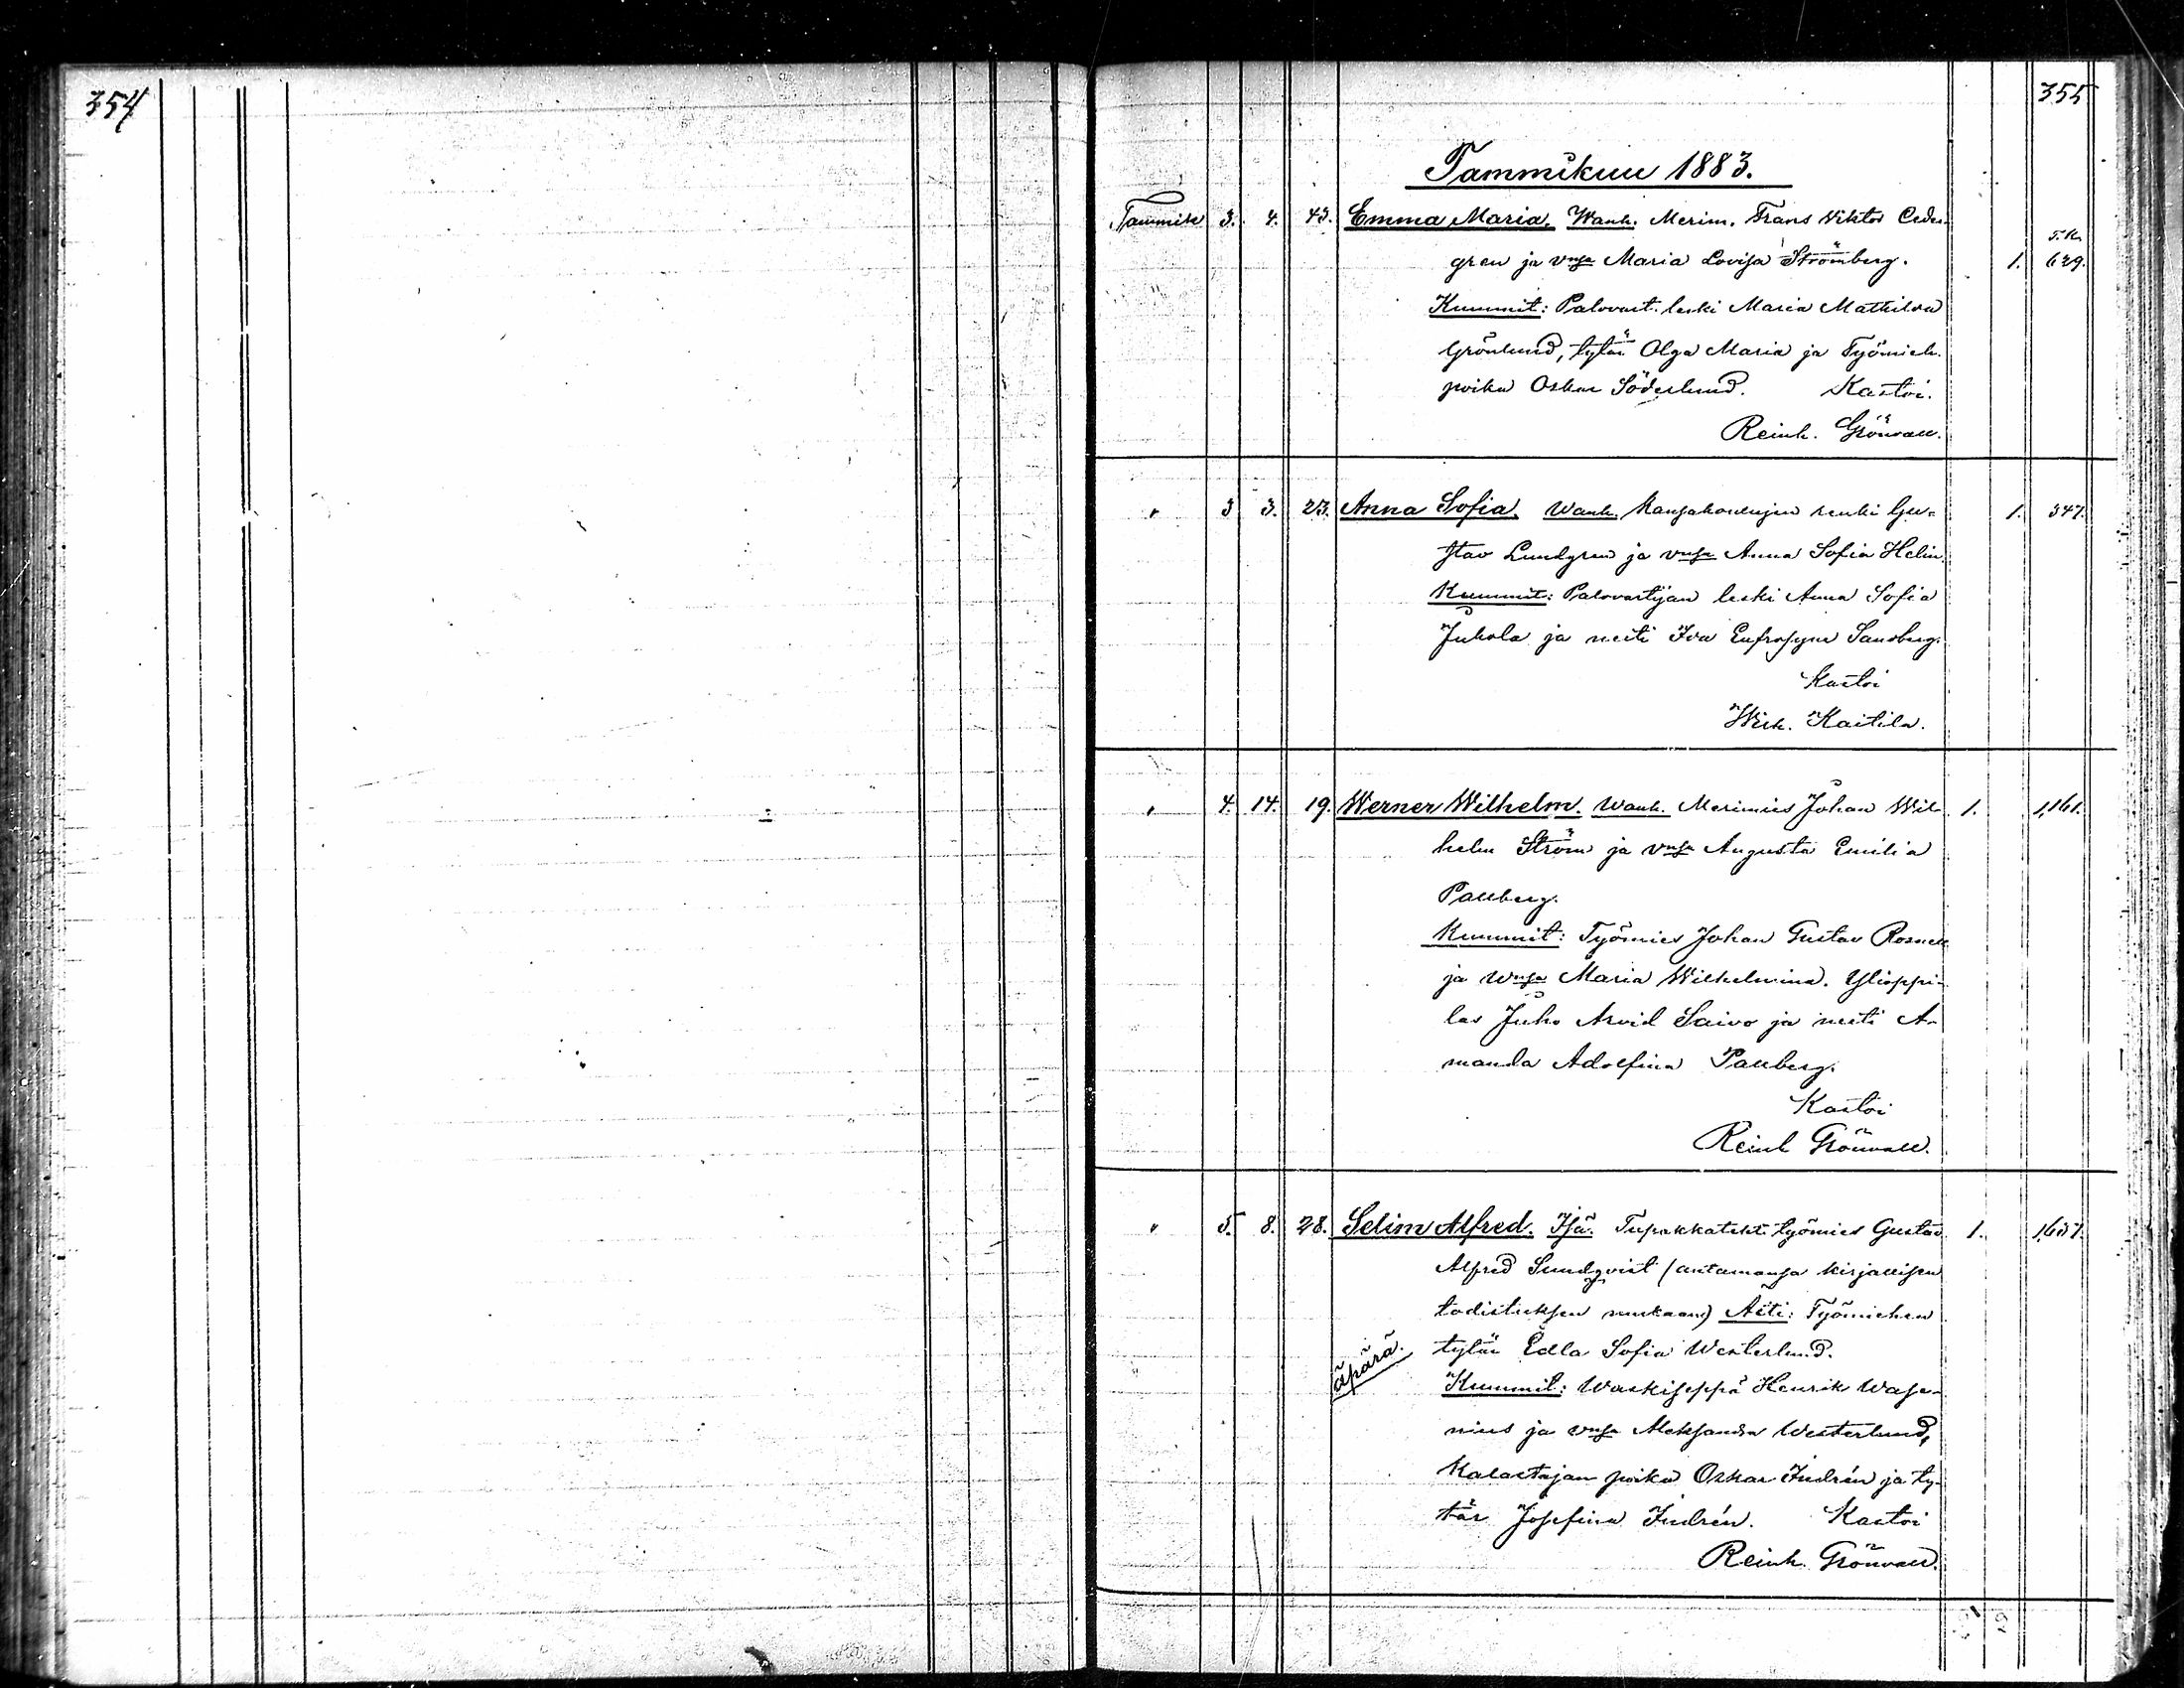 354
355
Tammikuu 1883.
Tammik 3. 4. 43. Emma Maria. Wanh. Merim. Frans Viktor Ceder-
T.K.
gren ja vmsa Maria Lovisa Strömberg. 1. 629.
Kummit: Palovart. leski Maria Mathilda
Grönlund, tytär Olga Maria ja Työmieh.
poika Oskar Söderlund. Kastoi.
Reinh. Grönvall.
" 3 3. 23. Anna Sofia. Wanh. Kansakoulujen renki Gu- 1. 347.
stav Lundgren ja vmsa Anna Sofia Helin.
Kummit: Palovartijan leski Anna Sofia
Juhola ja neiti Ida Eufrosyne Sandberg.
Kastoi
Wih. Kaitila.
" 4. 14. 19. Werner Wilhelm. Wanh. Merimies Johan Wil- 1. 1,161.
helm Ström ja vmsa Augusta Emilia
Pallberg.
Kummit: Työmies Johan Gustav Rosnell
ja vmsa Maria Wilhelmina. Ylioppi-
las Juho Arvid Saivo ja neiti A-
manda Adolfina Pallberg.
Kastoi
Reinh Grönvall.
" 5. 8. 28. Selim Alfred. Isä. Tupakkateht. työmies Gustav 1.
Alfred Sundqvist (antamansa kirjallisen
todistuksen mukaan) Äiti: Työmiehen
äpärä. tytär Edla Sofia Westerlund.
Kummit: Waskiseppä Henrik Wase-
nius ja vmsa Aleksandra Westerlund,
Kalastajan poika Oskar Indrén ja ty-
tär Josefina Indrén. Kastoi
Reinh. Grönvall.